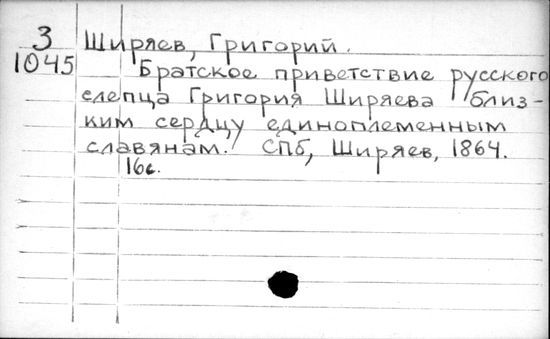 З Ширяев, Григорий.
1045 Братское приветствие русского
слепца Григория Ширяева близ-
ким сердцу единоплеменным
славянам. СПб, Ширяев, 1864.
16с.